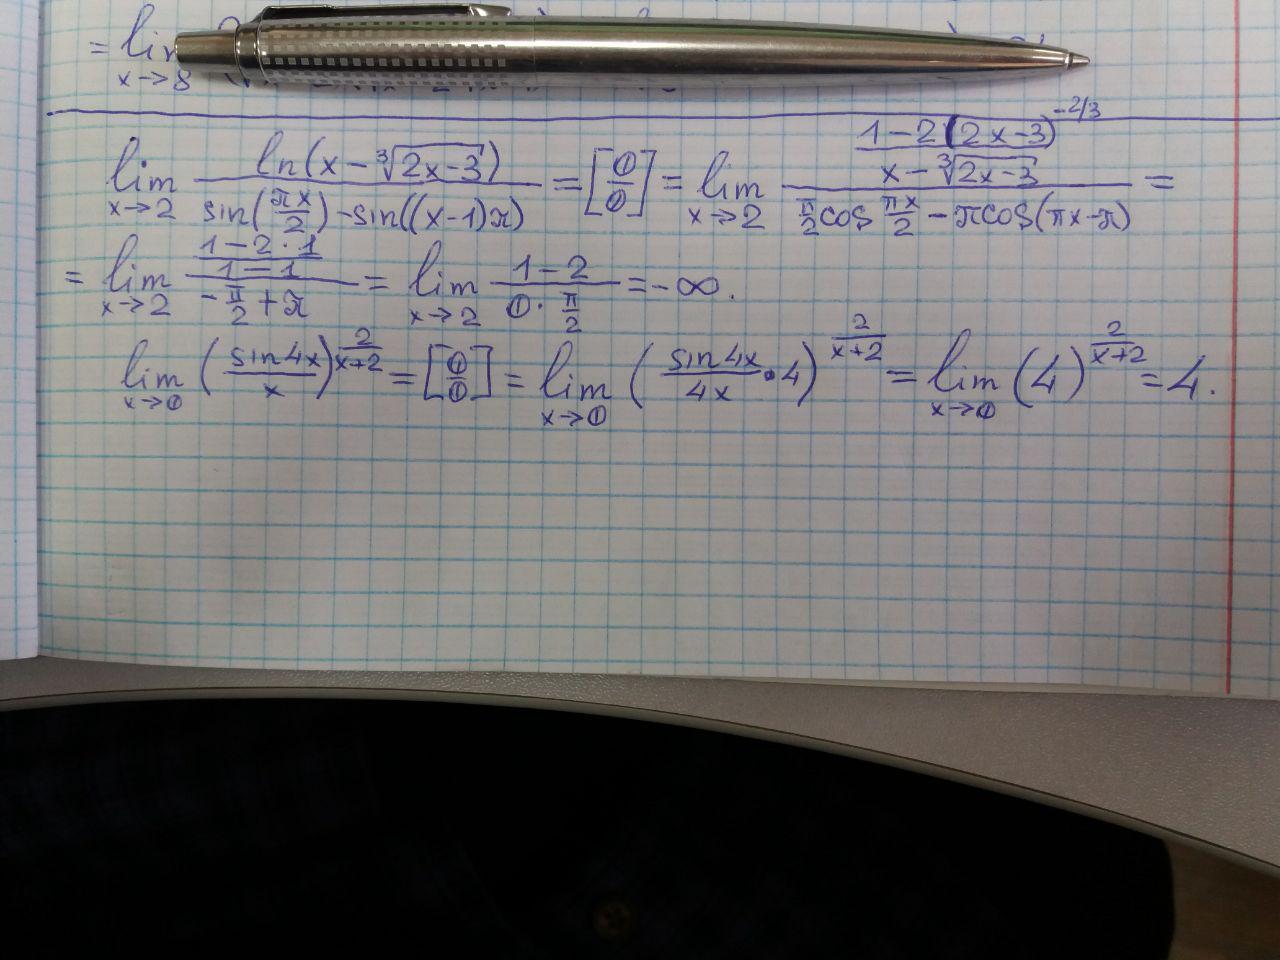 = lim x→8
lim x→2 ln(x - ∛(2x-3)) / (sin(πx/2) - sin((x-1)π)) = [0/0] = lim x→2 ((1-2(2x-3)^(-2/3)) / (x - ∛(2x-3))) / (π/2 cos πx/2 - π cos(πx-π)) =
= lim x→2 ((1-2·1) / (1-1)) / (-π/2 + π) = lim x→2 (1-2) / (0·π/2) = -∞.
lim x→0 (sin4x / x)^(2/(x+2)) = [0/0] = lim x→0 (sin4x / 4x · 4)^(2/(x+2)) = lim x→0 (4)^(2/(x+2)) = 4.